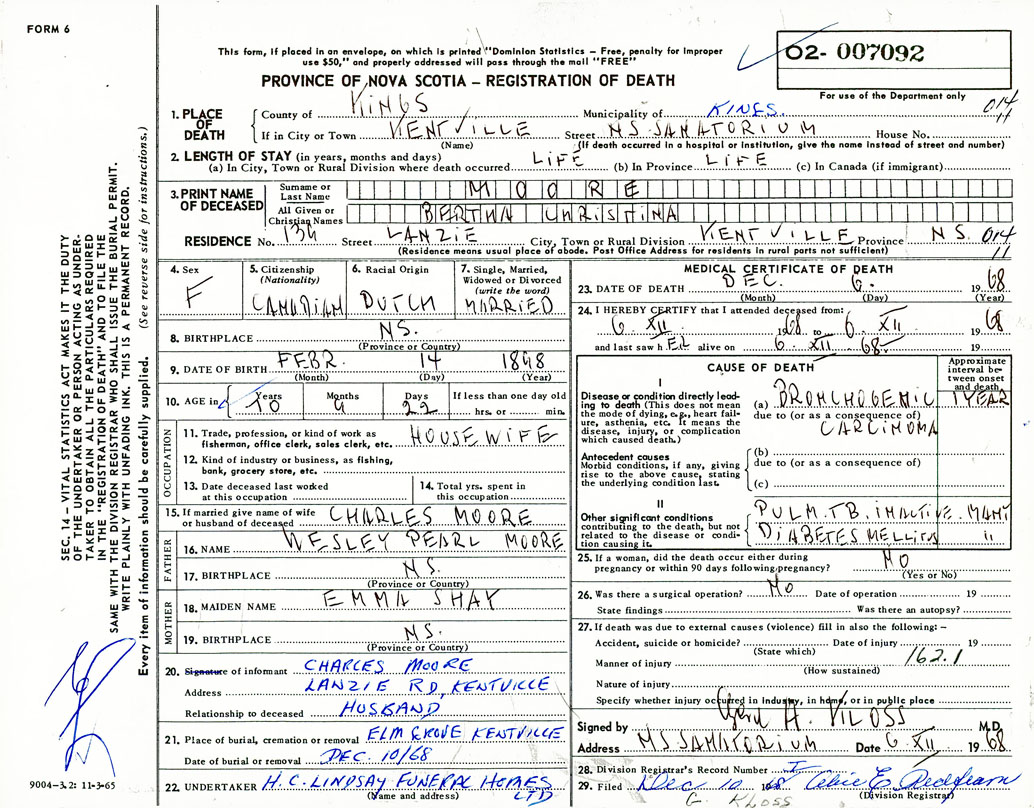 FORM 6
This form, if placed in an envelope, on which is printed "Dominion Statistics – Free, penalty for improper
use $50," and properly addressed will pass through the mail "FREE"
02- 007092
PROVINCE OF NOVA SCOTIA – REGISTRATION OF DEATH
For use of the Department only
014
11
1. PLACE OF DEATH
County of KINGS Municipality of KINGS.
If in City or Town KENTVILLE Street NS SANATORIUM House No.
(Name) (If death occurred in a hospital or institution, give the name instead of street and number)
2. LENGTH OF STAY (in years, months and days)
(a) In City, Town or Rural Division where death occurred LIFE (b) In Province LIFE (c) In Canada (if immigrant)
3. PRINT NAME OF DECEASED
Surname or Last Name MOORE
All Given or Christian Names BERTHA CHRISTINA
RESIDENCE No. 139 Street LANZIE City, Town or Rural Division KENTVILLE Province N S. 014
11
(Residence means usual place of abode. Post Office Address for residents in rural parts not sufficient)
4. Sex F
5. Citizenship (Nationality) CANADIAN
6. Racial Origin DUTCH
7. Single, Married, Widowed or Divorced (write the word) MARRIED
8. BIRTHPLACE NS.
(Province or Country)
9. DATE OF BIRTH FEBR. 14 1898
(Month) (Day) (Year)
10. AGE in Years 70 Months 9 Days 22 If less than one day old
hrs. or min.
OCCUPATION
11. Trade, profession, or kind of work as HOUSEWIFE
fisherman, office clerk, sales clerk, etc.
12. Kind of industry or business, as fishing,
bank, grocery store, etc.
13. Date deceased last worked
at this occupation
14. Total yrs. spent in
this occupation
15. If married give name of wife
or husband of deceased CHARLES MOORE
FATHER
16. NAME WESLEY PEARL MOORE
17. BIRTHPLACE N S.
(Province or Country)
MOTHER
18. MAIDEN NAME EMMA SHAY
19. BIRTHPLACE N S.
(Province or Country)
20. Signature of informant CHARLES MOORE
Address LANZIE RD, KENTVILLE
Relationship to deceased HUSBAND
21. Place of burial, cremation or removal ELM GROVE KENTVILLE
Date of burial or removal DEC. 10/68
22. UNDERTAKER H. C. LINDSAY FUNERAL HOMES
(Name and address) LTD
MEDICAL CERTIFICATE OF DEATH
23. DATE OF DEATH DEC. 6. 1968
(Month) (Day) (Year)
24. I HEREBY CERTIFY that I attended deceased from:
6 XII 1968 to 6. XII 1968
and last saw hER alive on 6 XII 68
CAUSE OF DEATH
Approximate interval between onset and death
I
Disease or condition directly leading to death (This does not mean
the mode of dying, e.g., heart failure, asthenia, etc. It means the
disease, injury, or complication
which caused death.)
(a) BRONCHOGENIC 1 YEAR
due to (or as a consequence of)
CARCINOMA
Antecedent causes
Morbid conditions, if any, giving
rise to the above cause, stating
the underlying condition last.
(b)
due to (or as a consequence of)
(c)
II
Other significant conditions
contributing to the death, but not
related to the disease or condition causing it.
PULM. TB. INACTIVE. MANY
DIABETES MELLITUS "
25. If a woman, did the death occur either during
pregnancy or within 90 days following pregnancy? NO
(Yes or No)
26. Was there a surgical operation? NO Date of operation 19
State findings Was there an autopsy?
27. If death was due to external causes (violence) fill in also the following: –
Accident, suicide or homicide? Date of injury 19
(State which)
162.1
Manner of injury
(How sustained)
Nature of injury
Specify whether injury occurred in industry, in home, or in public place
Signed by H. KLOSS M.D.
Address NS SANATORIUM Date 6 XII 1968
28. Division Registrar's Record Number
29. Filed Dec 10 1968
(Division Registrar)
G. KLOSS
SEC. 14 – VITAL STATISTICS ACT MAKES IT THE DUTY
OF THE UNDERTAKER OR PERSON ACTING AS UNDER-
TAKER TO OBTAIN ALL THE PARTICULARS REQUIRED
IN THE "REGISTRATION OF DEATH" AND TO FILE THE
SAME WITH THE DIVISION REGISTRAR WHO SHALL ISSUE THE BURIAL PERMIT.
WRITE PLAINLY WITH UNFADING INK. THIS IS A PERMANENT RECORD.
Every item of information should be carefully supplied. (See reverse side for instructions.)
9004-3.2: 11-3-65